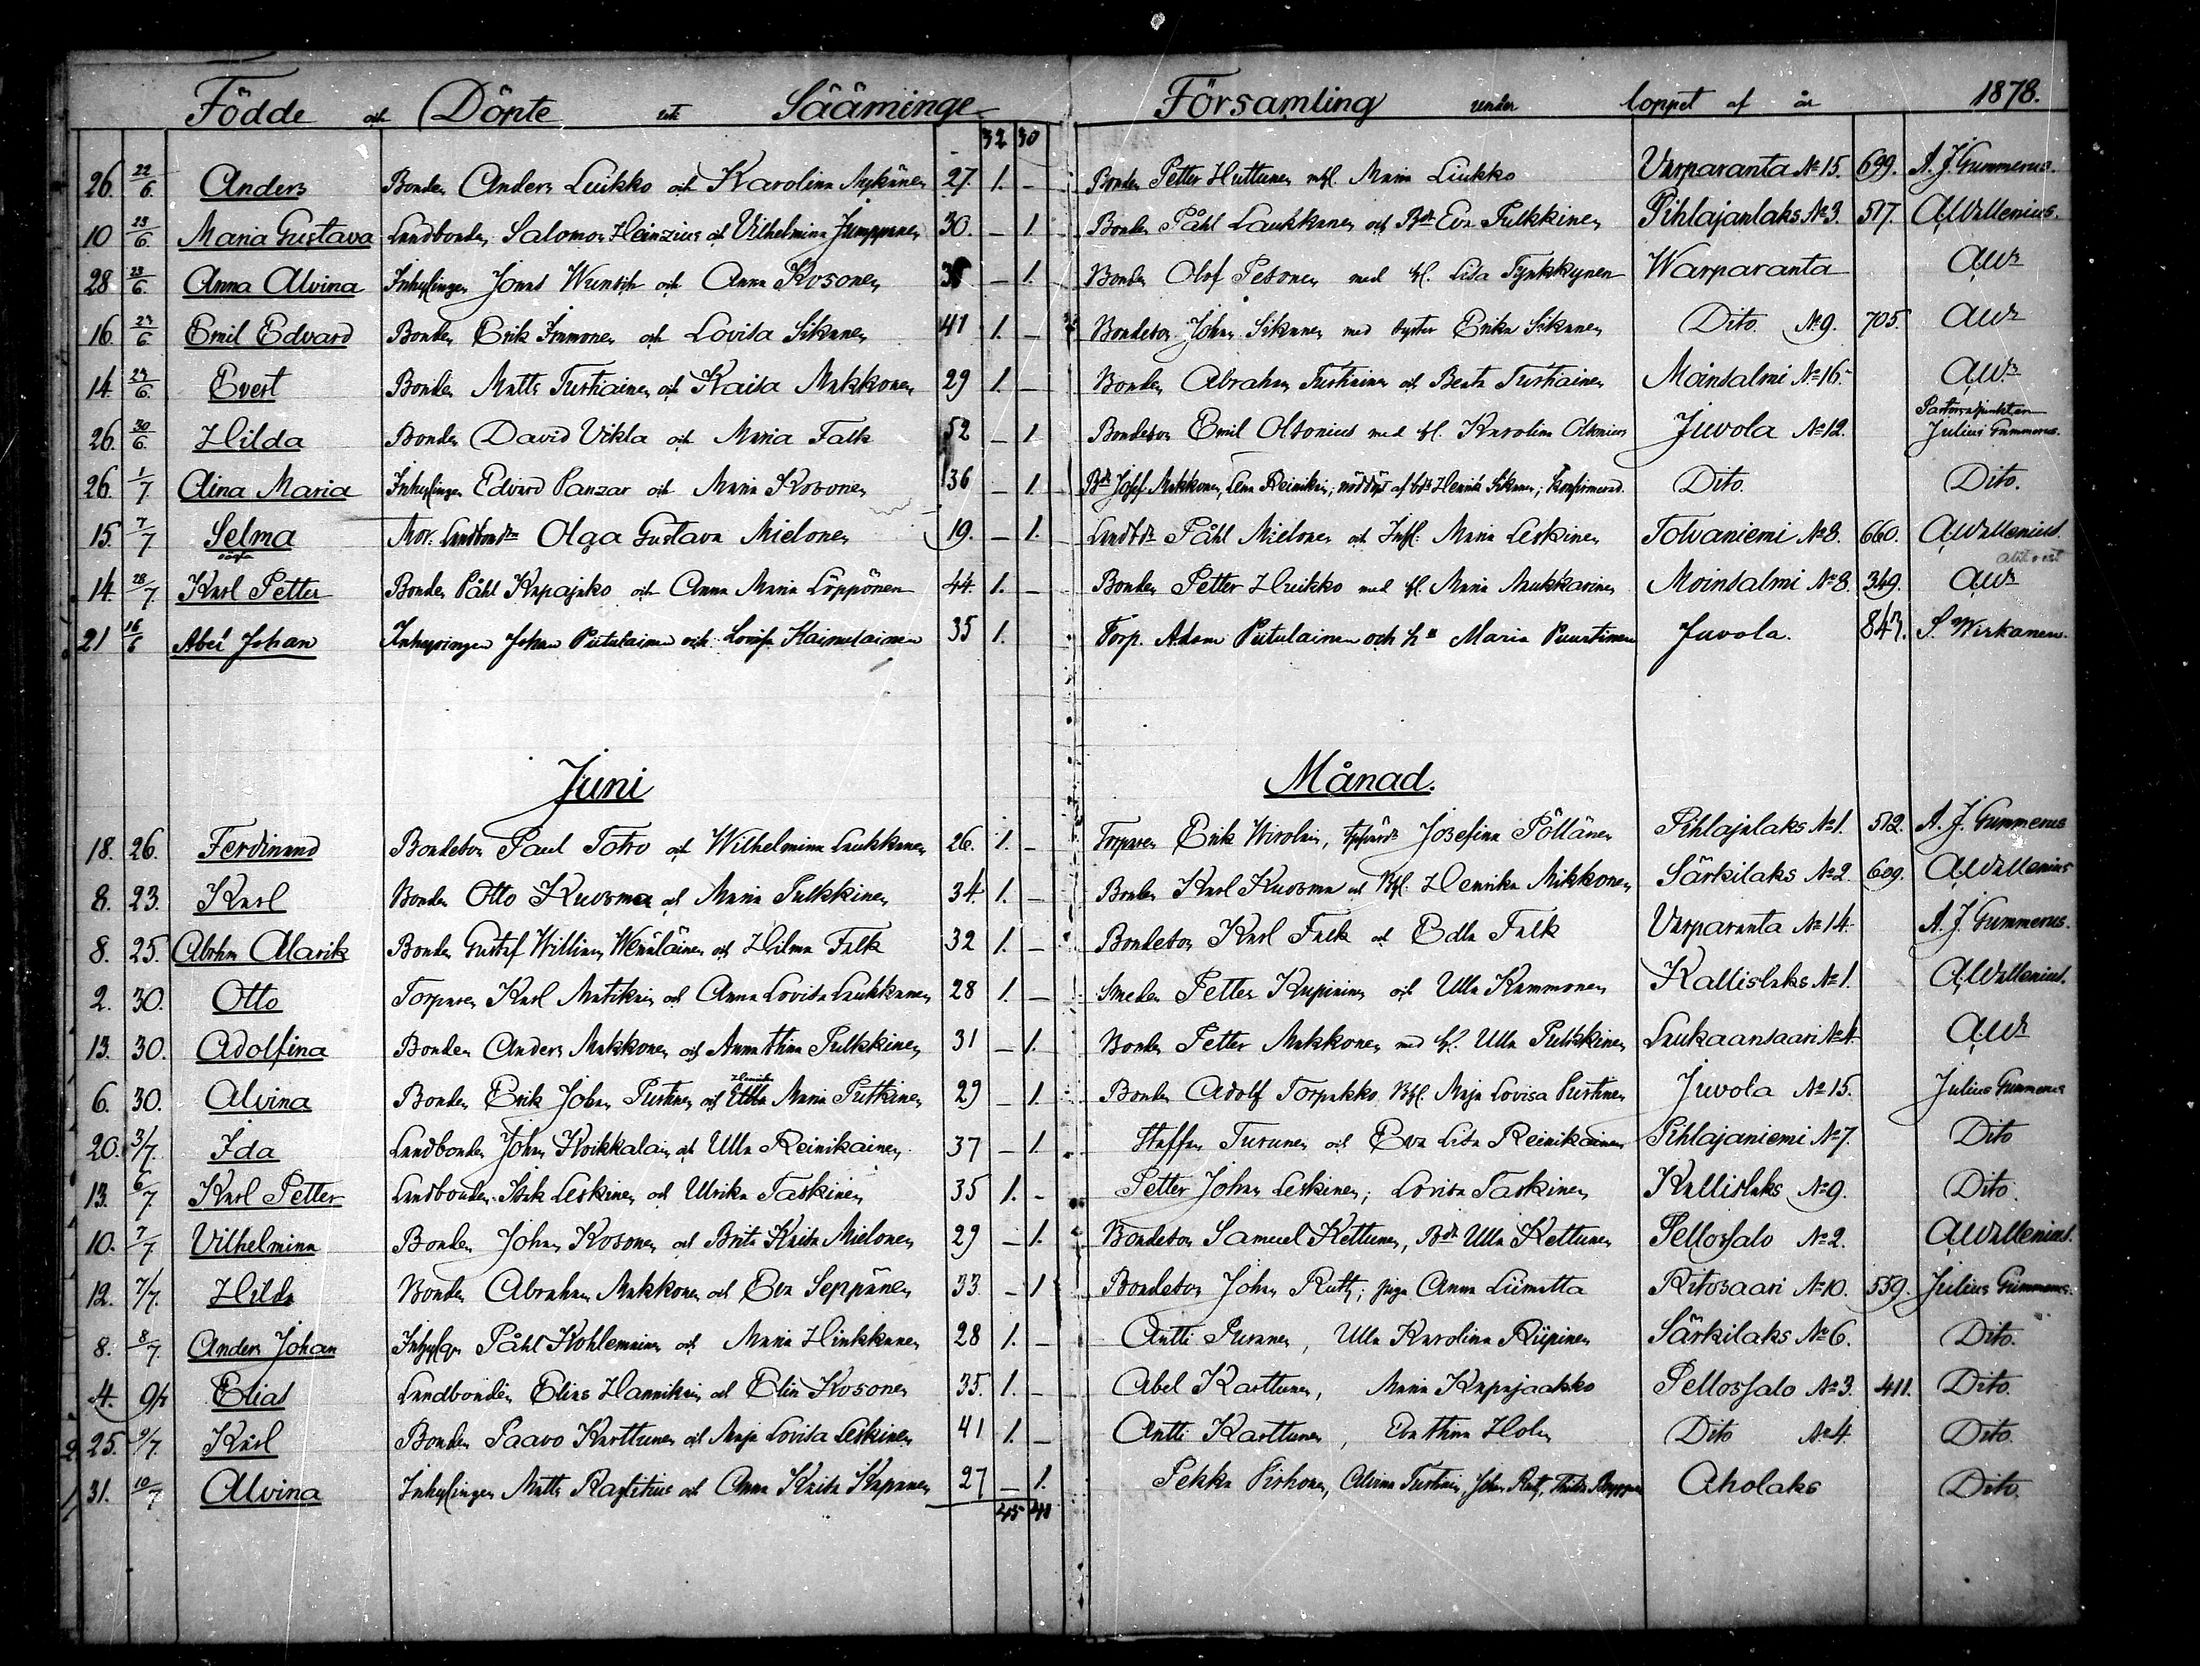 Födde och Döpte uti Sääminge Församling under loppet af år 1878.
32 30
26. 22/6. Anders Bonden Anders Liukko och Karolina Nykänen 27. 1. – Bonden Petter Huttunen m. h. Maria Liukko Varparanta No 15. 699. A. J. Gummerus.
10 23/6. Maria Gustava Landbonden Salomon Heinzius och Vilhelmina Jumppanen 30. – 1. Bonden Påhl Laukkanen och Bdr Eva Pulkkinen Pihlajanlaks No 3. 517. A. Wallenius.
28 23/6. Anna Alvina Inhysingen Jonas Wuntsh och Anna Kosonen – 1. Bonden Olof Pesonen med h. Lisa Tynkkynen Warparanta AWs
16. 24/6. Emil Edvard Bonden Erik Immonen och Lovisa Sikanen 41 1. – Bondeson Johan Sikanen med syster Erika Sikanen Dito. No 9. 705. AWs
14. 24/6. Evert Bonden Matts Turtiainen och Kaisa Makkonen 29 1. – Bonden Abraham Turtiainen och Beata Turtiainen Moinsalmi No 16. AWs
26. 30/6. Hilda Bonden David Vikla och Maria Falk 52 – 1 Bondeson Emil Olsonius med h. Karolina Olsonius Juvola No 12. Pastorsadjunkten Julius Gummerus.
26. 1/7. Aina Maria Inhysingen Edvard Panzar och Maria Kosonen 36 – 1. Bdr Josef Makkonen, Lena Reinikain, nöddöpt af Henrik Sikanen; Konfirmerad. Dito. Dito.
15. 7/7 Selma oäkta Mor. Landbondr Olga Gustava Mielonen 19. – 1. Landbdr Påhl Mielonen och Inh. Maria Leskinen Tolvaniemi No 8. 660. A. Wallenius.
14. 28/7. Karl Petter Bonden Påhl Kapajako och Anna Maria Löppönen 44. 1. – Bonden Petter Huikko med h. Maria Maukkarinen Moinsalmi No 8. 369. AWs
21 16/6 Abel Johan Inhysingen Johan Putulainen och Lovisa Kaimulainen 35 1. Torp. Adam Putulainen och h. Maria Puustinen Juvola. 843. S. Wirkanen.
Juni Månad.
18. 26. Ferdinand Bondeson Paul Totro och Wilhelmina Laukkanen 26. 1. – Torparen Erik Wirolain, Josefina Pöllänen Pihlajalaks No 1. 512. A. J. Gummerus
8. 23. Karl Bonden Otto Kuosma och Maria Pulkkinen 34. 1. – Bonden Karl Kuosma och Bh. Henrika Mikkonen Särkilaks No 2. 609. A. Wallenius
8. 25. Abrhm Alarik Bonden Gustaf William Wenäläinen och Hilma Falk 32 1. – Bondeson Karl Falk och Edla Falk Varparanta No 14. A. J. Gummerus.
2. 30. Otto Torparen Karl Matikain och Anna Lovisa Laukkanen 28 1. – Smeden Petter Kupiainen och Ulla Kammonen Kallislaks No 1. A. Wallenius.
13. 30. Adolfina Bonden Anders Makkonen och Anna Stina Pulkkinen 31 – 1. Bonden Petter Makkonen med h. Ulla Pulkkinen Laukaansaari No 4. AWs
6. 30. Alvina Bonden Erik Johan Purtinen och Henrika Maria Putkinen 29 – 1. Bonden Adolf Torpakko Bh. Maja Lovisa Purtinen Juvola No 15. Julius Gummerus
20. 3/7. Ida Landbonden Johan Koikkalain och Ulla Reinikainen 37 – 1. Staffan Turunen och Eva Lisa Reinikainen Pihlajaniemi No 7. Dito
13. 6/7 Karl Petter Landbonden Isak Leskinen och Ulrika Taskinen 35 1. – Petter Johan Leskinen; Lovisa Taskinen Kallislaks No 9. Dito.
10. 7/7 Vilhelmina Bonden Johan Kosonen och Brita Kaisa Mielonen 29 – 1. Bondeson Samuel Kettunen, Bdr Ulla Kettunen Pellossalo No 2. A. Wallenius.
12. 7/7. Hilda Bonden Abraham Makkonen och Eva Seppänen 33. – 1 Bondeson Johan Rutz; piga Anna Liimatta Ritosaari No 10. 559. Julius Gummerus.
8. 8/7. Anders Johan Inhysgn Påhl Kohlemainen och Maria Hinkkanen 28 1. – Antti Puranen, Ulla Karolina Riipinen Särkilaks No 6. Dito.
4. 9/7 Elias Landbonden Elias Hannikain och Elin Kosonen 35. 1. – Abel Karttunen, Maria Kapajaakko Pellossalo No 3. 411. Dito.
25. 9/7 Karl Bonden Paavo Karttunen och Maja Lovisa Leskinen 41 1. – Antti Karttunen, Eva Stina Holm Dito No 4. Dito.
31. 10/7 Alvina Inhysingen Matts Raglitius och Anna Kaisa Kapanen 27 – 1. Pekka Pirhonen, Alvina Turtiain, Johan Rutz, Aholaks Dito.
45 41